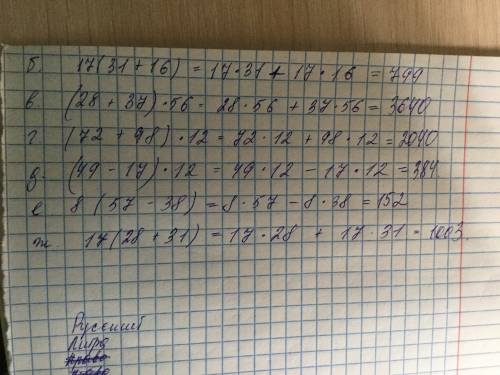 б. 17(31 + 16) = 17·31 + 17·16 = 799
в. (28 + 37)·56 = 28·56 + 37·56 = 3640
г (72 + 98)·12 = 72·12 + 98·12 = 2040
д. (49 - 17)·12 = 49·12 - 17·12 = 384.
е 8(57 - 38) = 8·57 - 8·38 = 152
ж. 17(28 + 31) = 17·28 + 17·31 = 1003.
Русский
Лира